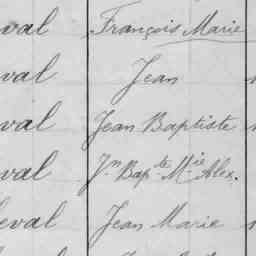 val François Marie
val Jean
val Jean Baptiste
val Jn Bapte Mie Alex.
eval Jean Marie